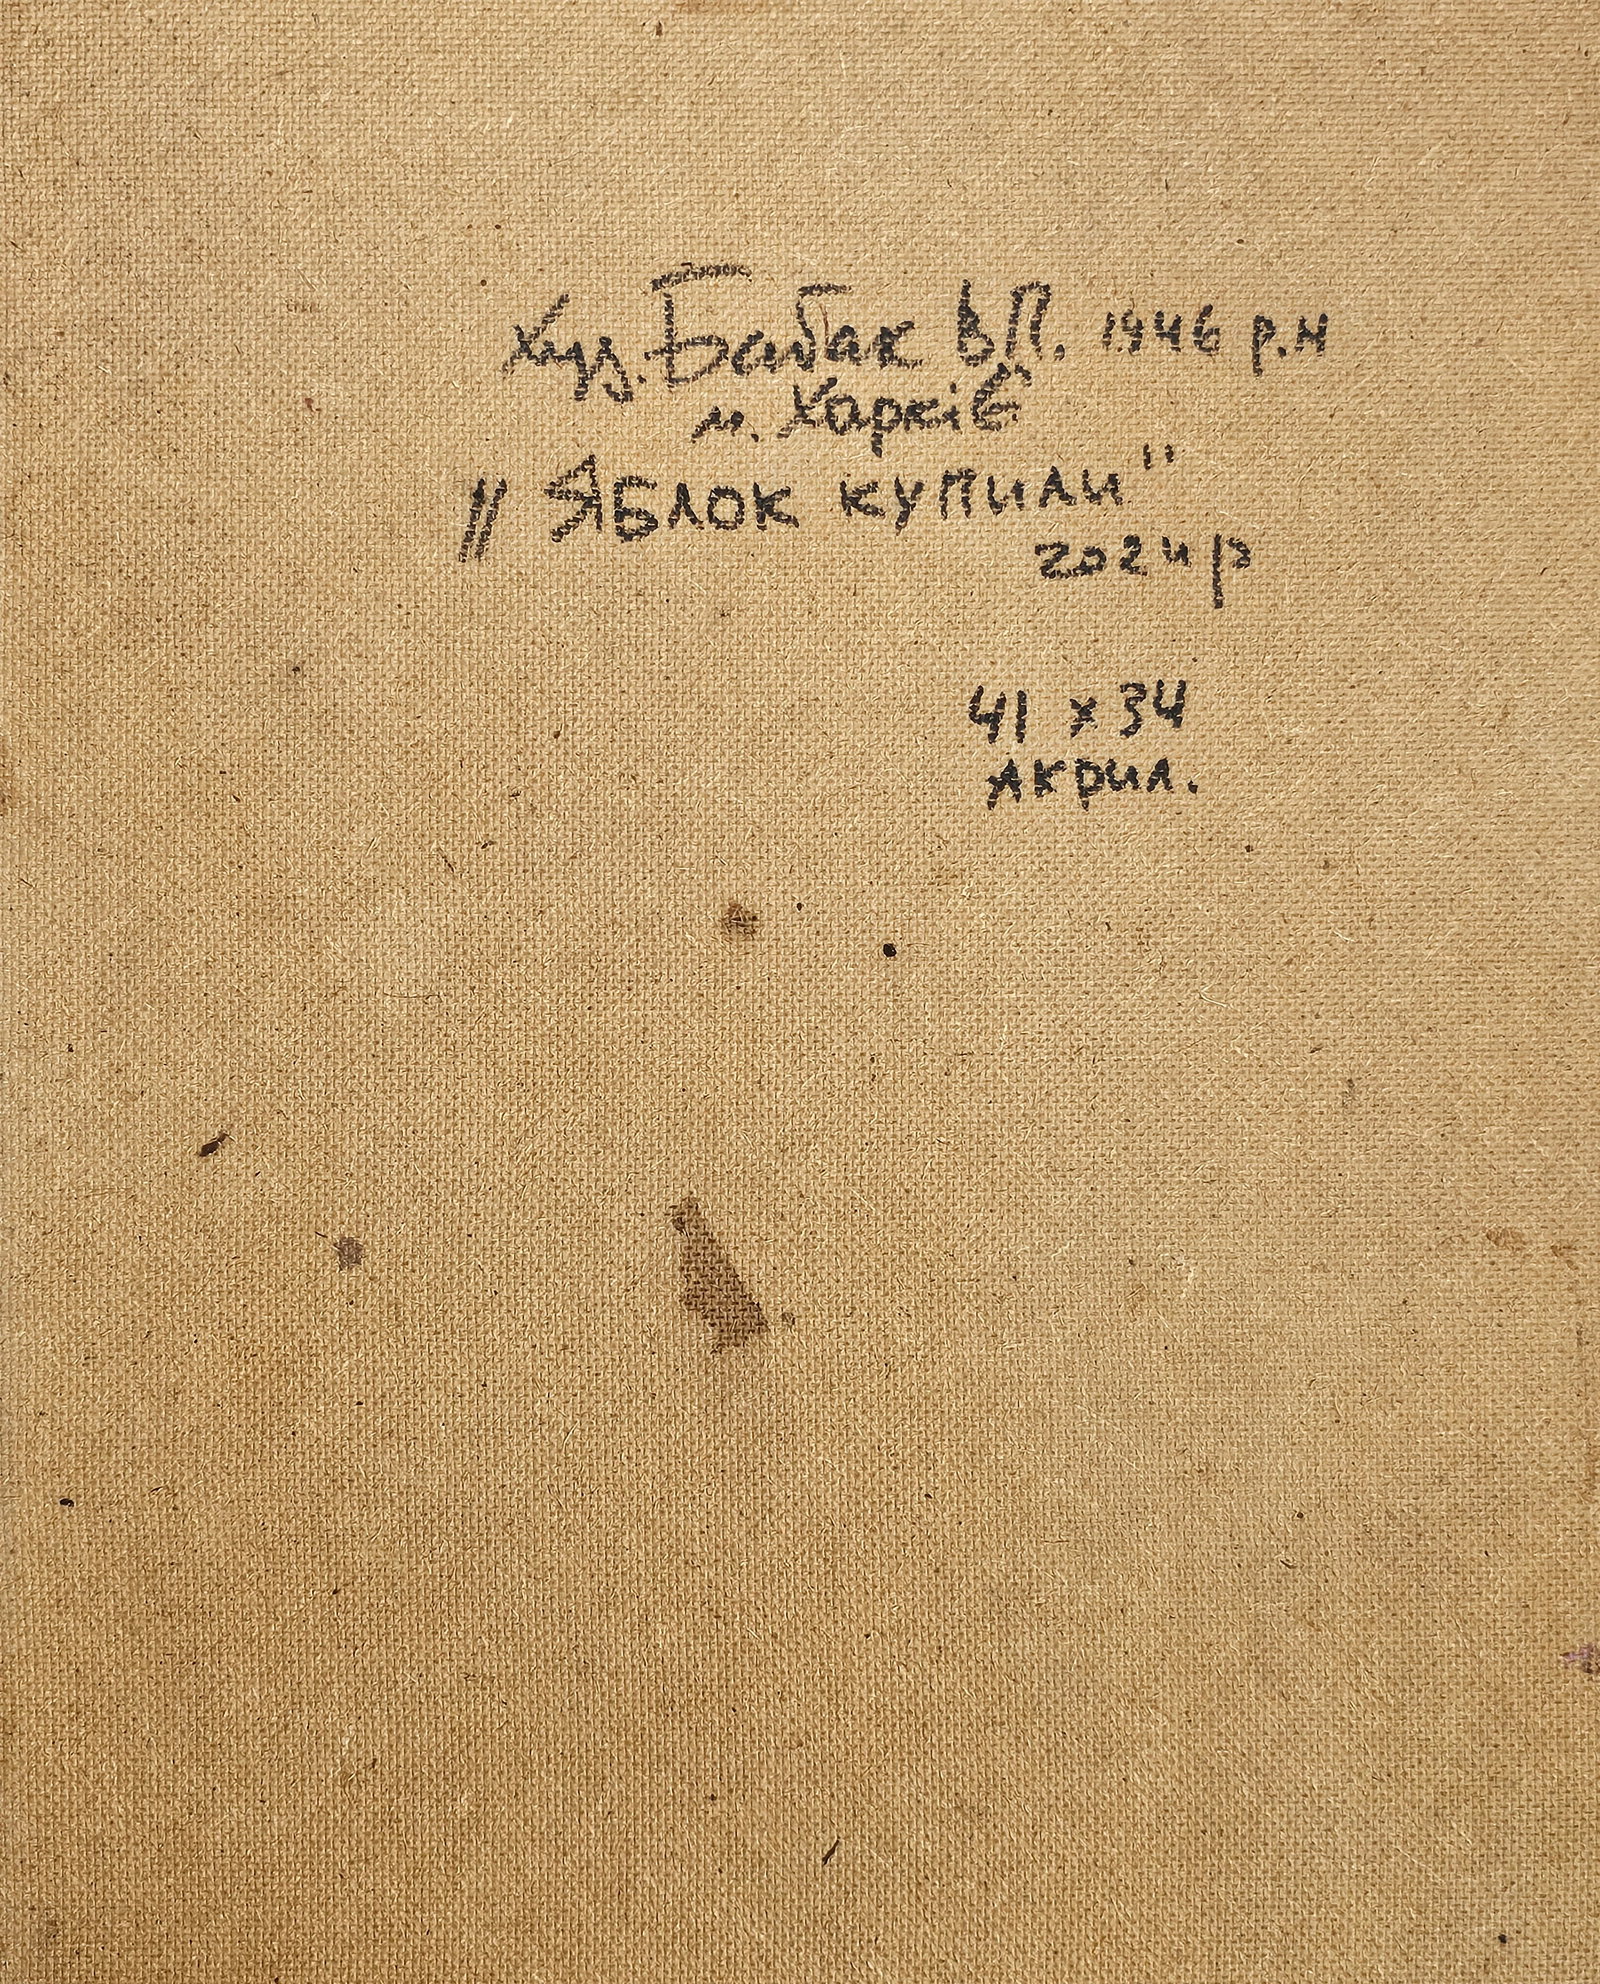 Худ. Бабак В П. 1946 р.н
м. Харків
"Яблок купили"
2024р
41 х 34
Акрил.